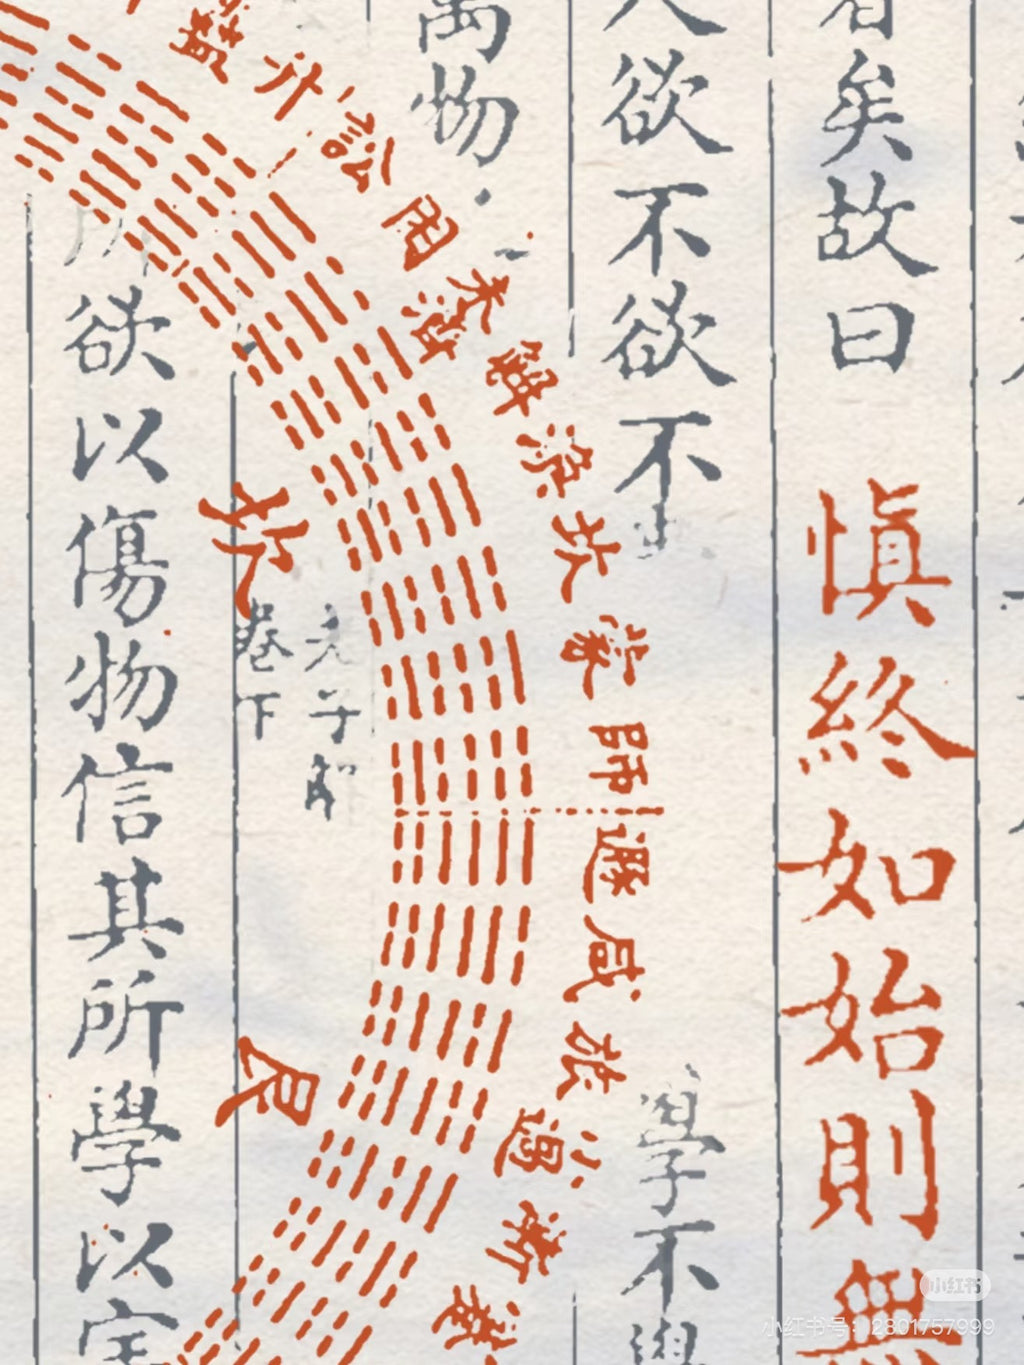 者矣故曰
慎終如始則無
人欲不欲不
學不學
萬物
老子解
卷下
所欲以傷物信其所學以害
升
訟
困
未濟
解
渙
坎
蒙
師
遯
咸
旅
小過
漸
蹇
坎
艮
小红书
小红书号：2801757999